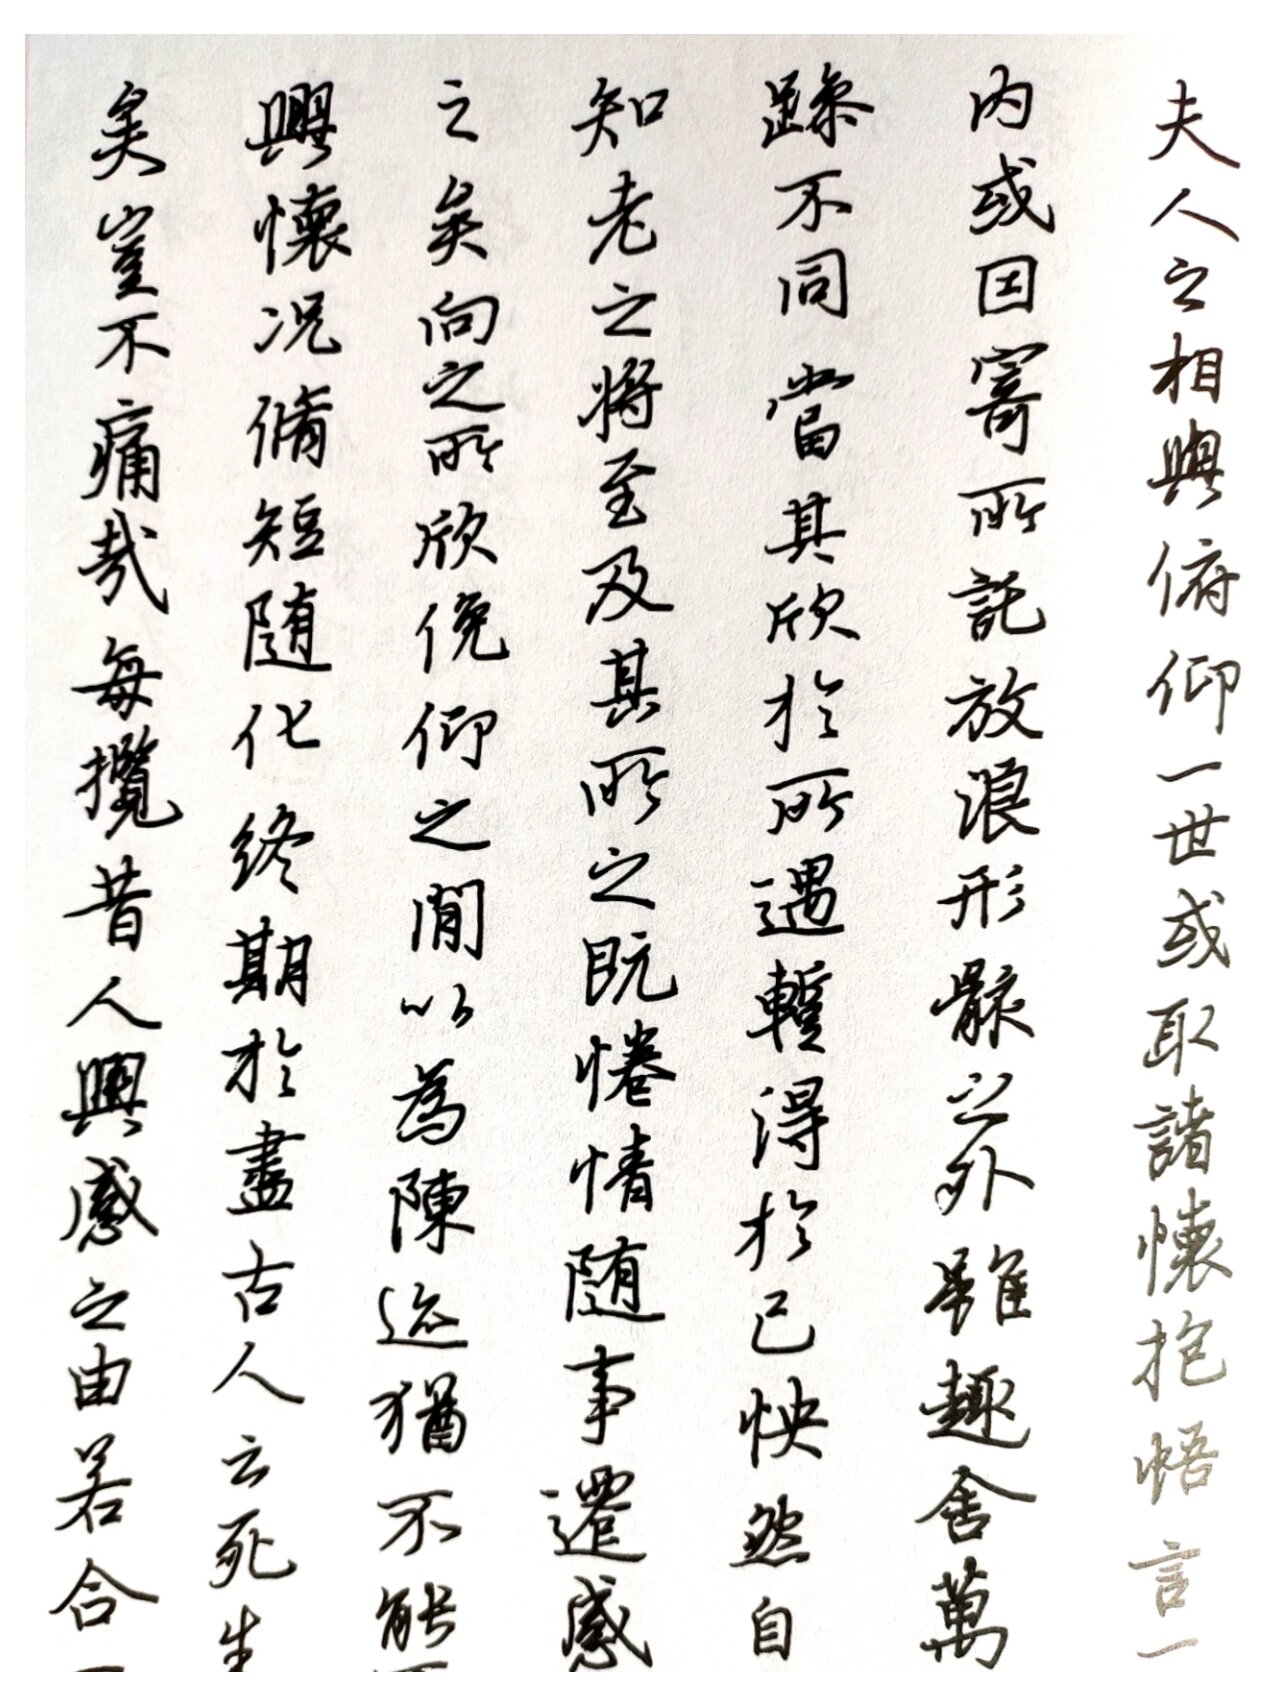 夫人之相與俯仰一世或取諸懷抱悟言一
內或因寄所託放浪形骸之外雖趣舍萬
躁不同當其欣於所遇暫得於己怏然自
知老之將至及其所之既惓情隨事遷感
之矣向之所欣俛仰之閒以為陳迹猶不能
興懷況脩短隨化終期於盡古人云死生
矣豈不痛哉每攬昔人興感之由若合